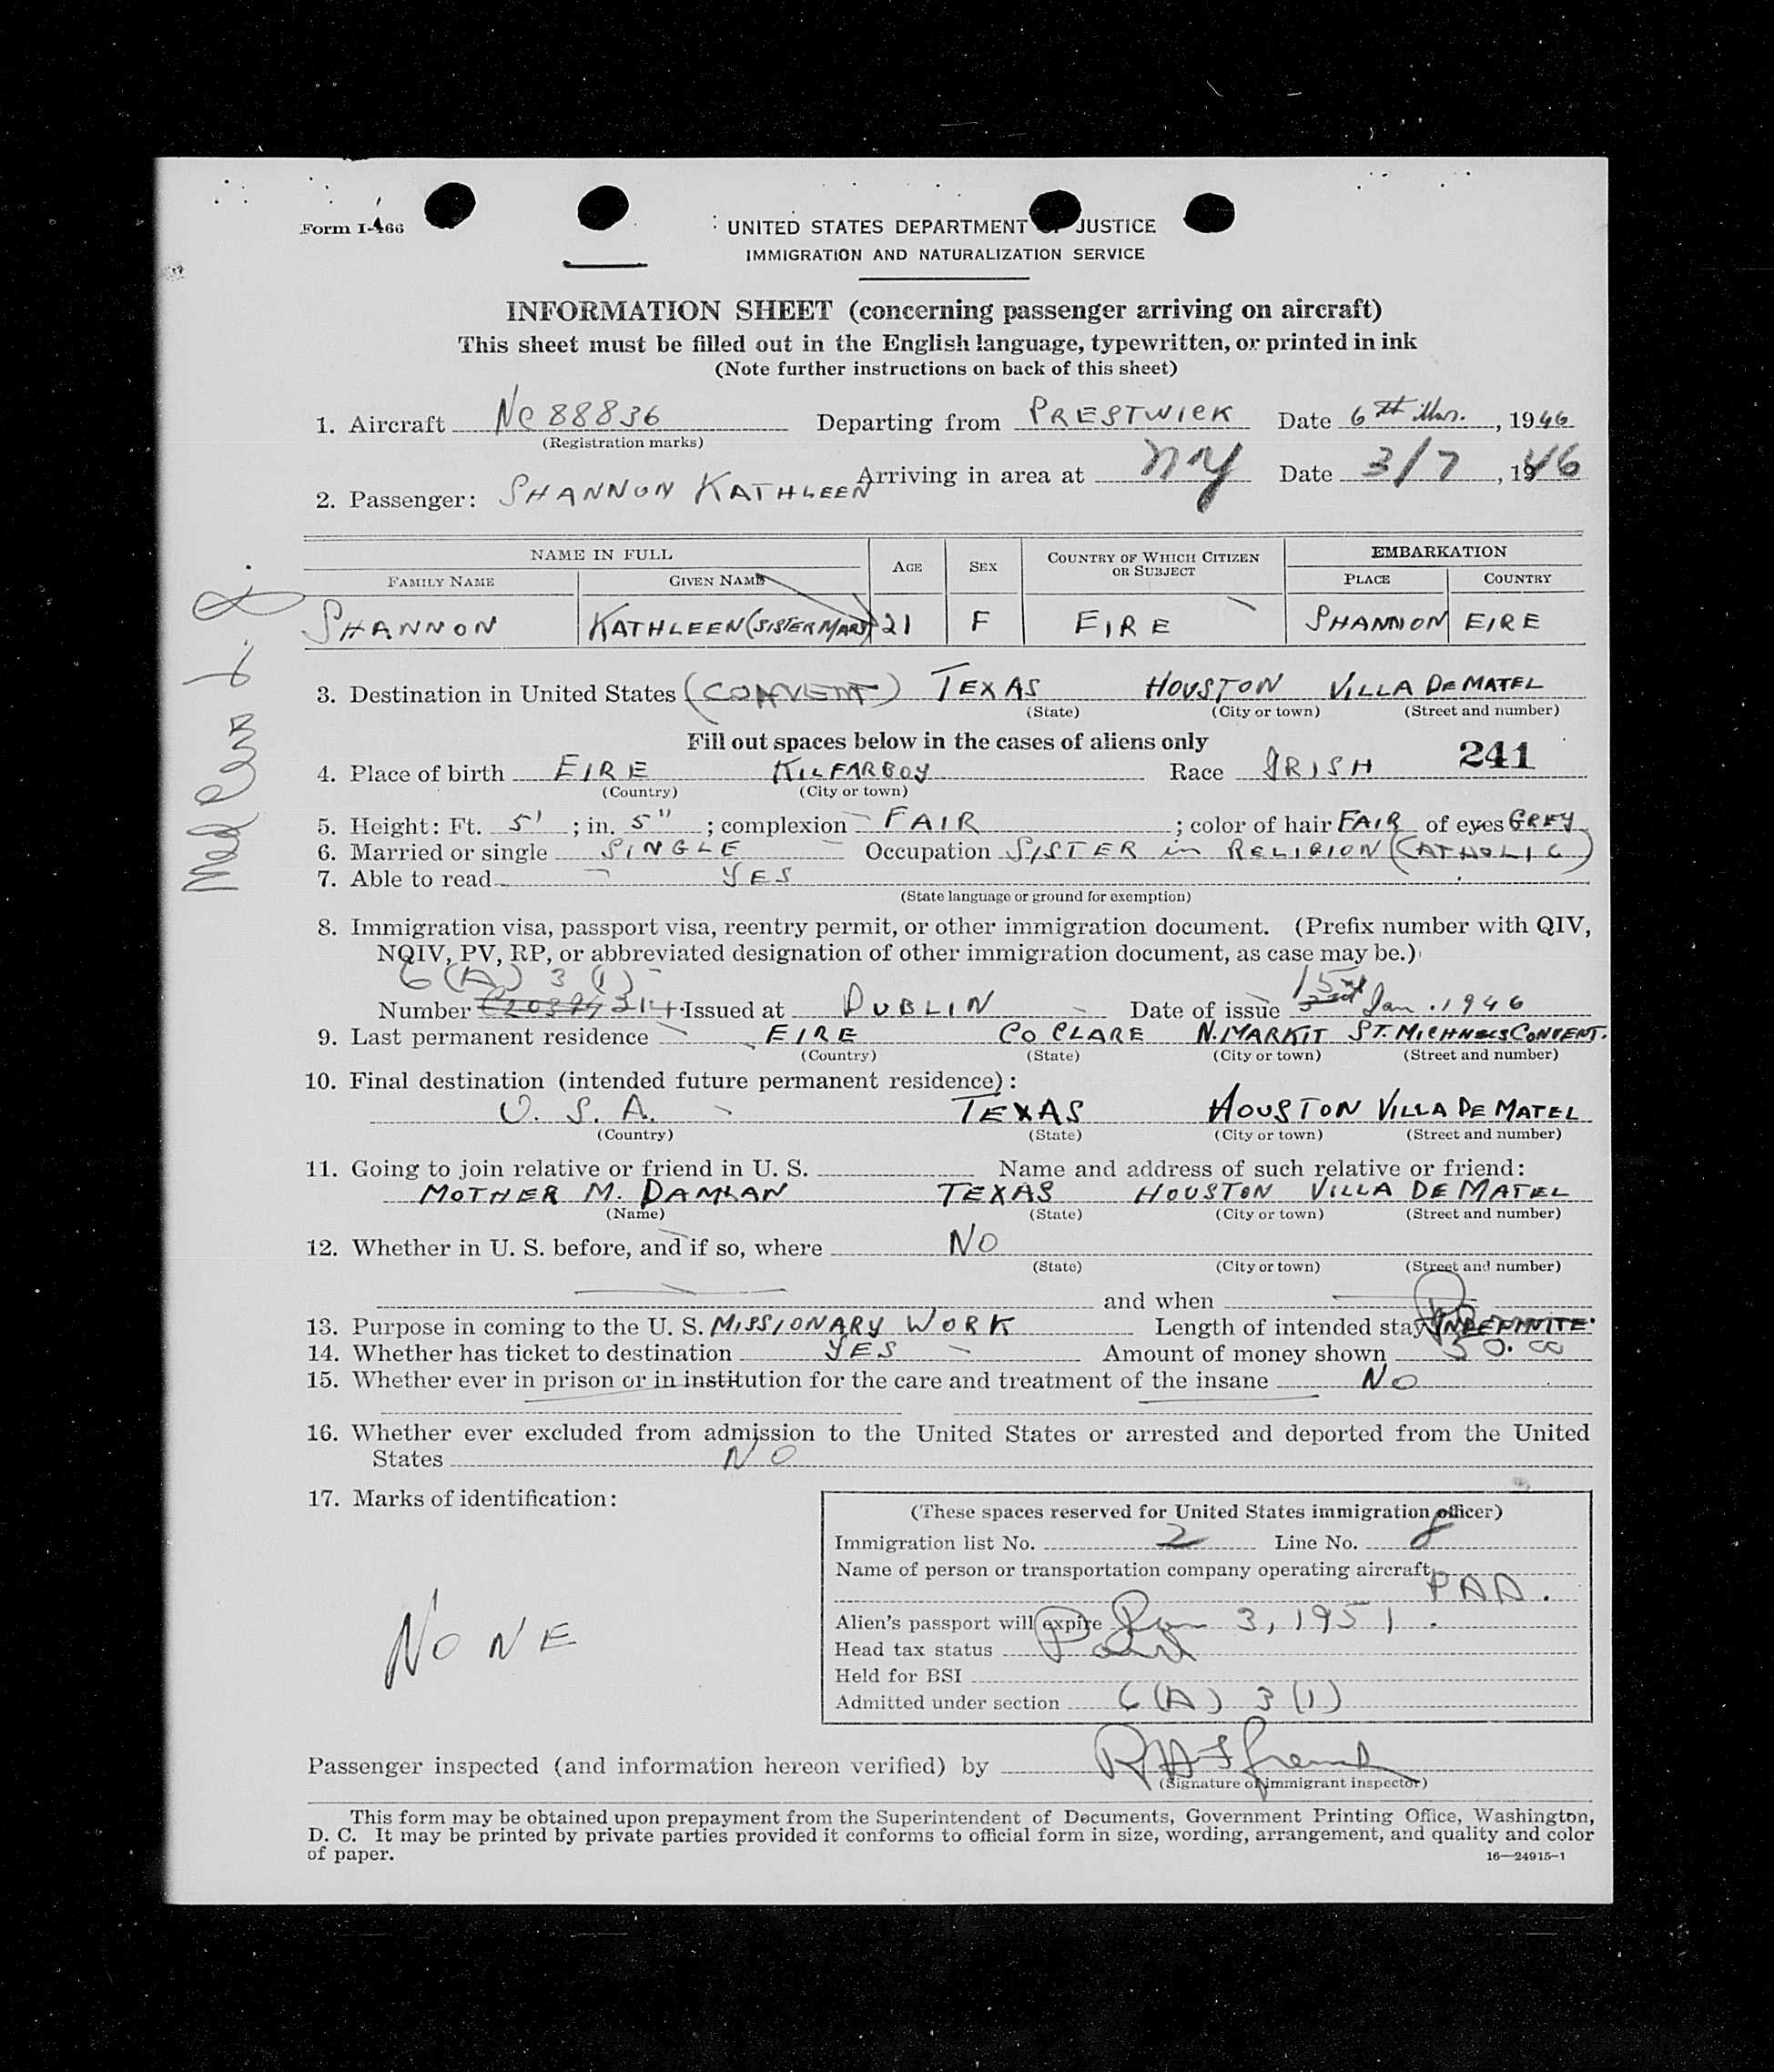 Form I-466
UNITED STATES DEPARTMENT OF JUSTICE
IMMIGRATION AND NATURALIZATION SERVICE
INFORMATION SHEET (concerning passenger arriving on aircraft)
This sheet must be filled out in the English language, typewritten, or printed in ink
(Note further instructions on back of this sheet)
1. Aircraft NC 88836 Departing from PRESTWICK Date 6th Mar., 1946
(Registration marks)
Arriving in area at NY Date 3/7, 1946
2. Passenger: SHANNON KATHLEEN
NAME IN FULL AGE SEX COUNTRY OF WHICH CITIZEN OR SUBJECT EMBARKATION
FAMILY NAME GIVEN NAME PLACE COUNTRY
SHANNON KATHLEEN (SISTER MARY) 21 F EIRE SHANNON EIRE
3. Destination in United States (CONVENT) TEXAS HOUSTON VILLA DE MATEL
(State) (City or town) (Street and number)
Fill out spaces below in the cases of aliens only
241
4. Place of birth EIRE KILFARBOY Race IRISH
(Country) (City or town)
5. Height: Ft. 5'; in. 5"; complexion FAIR; color of hair FAIR of eyes GREY
6. Married or single SINGLE Occupation SISTER in RELIGION (CATHOLIC)
7. Able to read YES
(State language or ground for exemption)
8. Immigration visa, passport visa, reentry permit, or other immigration document. (Prefix number with QIV,
NQIV, PV, RP, or abbreviated designation of other immigration document, as case may be.)
6 (A) 3 (1)
Number 314 Issued at DUBLIN Date of issue 15th Jan. 1946
9. Last permanent residence EIRE CO CLARE N. MARKIT ST. MICHAELS CONVENT.
(Country) (State) (City or town) (Street and number)
10. Final destination (intended future permanent residence):
U. S. A. TEXAS HOUSTON VILLA DE MATEL
(Country) (State) (City or town) (Street and number)
11. Going to join relative or friend in U. S. Name and address of such relative or friend:
MOTHER M. DAMIAN TEXAS HOUSTON VILLA DE MATEL
(Name) (State) (City or town) (Street and number)
12. Whether in U. S. before, and if so, where NO
(State) (City or town) (Street and number)
and when
13. Purpose in coming to the U. S. MISSIONARY WORK Length of intended stay INDEFINITE
14. Whether has ticket to destination YES Amount of money shown 50.00
15. Whether ever in prison or in institution for the care and treatment of the insane NO
16. Whether ever excluded from admission to the United States or arrested and deported from the United
States NO
17. Marks of identification:
NONE
(These spaces reserved for United States immigration officer)
Immigration list No. 2 Line No. 8
Name of person or transportation company operating aircraft
PAA.
Alien's passport will expire Jan 3, 1951.
Head tax status Paid
Held for BSI
Admitted under section 6 (A) 3 (1)
Passenger inspected (and information hereon verified) by
(Signature of immigrant inspector)
This form may be obtained upon prepayment from the Superintendent of Documents, Government Printing Office, Washington,
D. C. It may be printed by private parties provided it conforms to official form in size, wording, arrangement, and quality and color
of paper.
16—24915-1